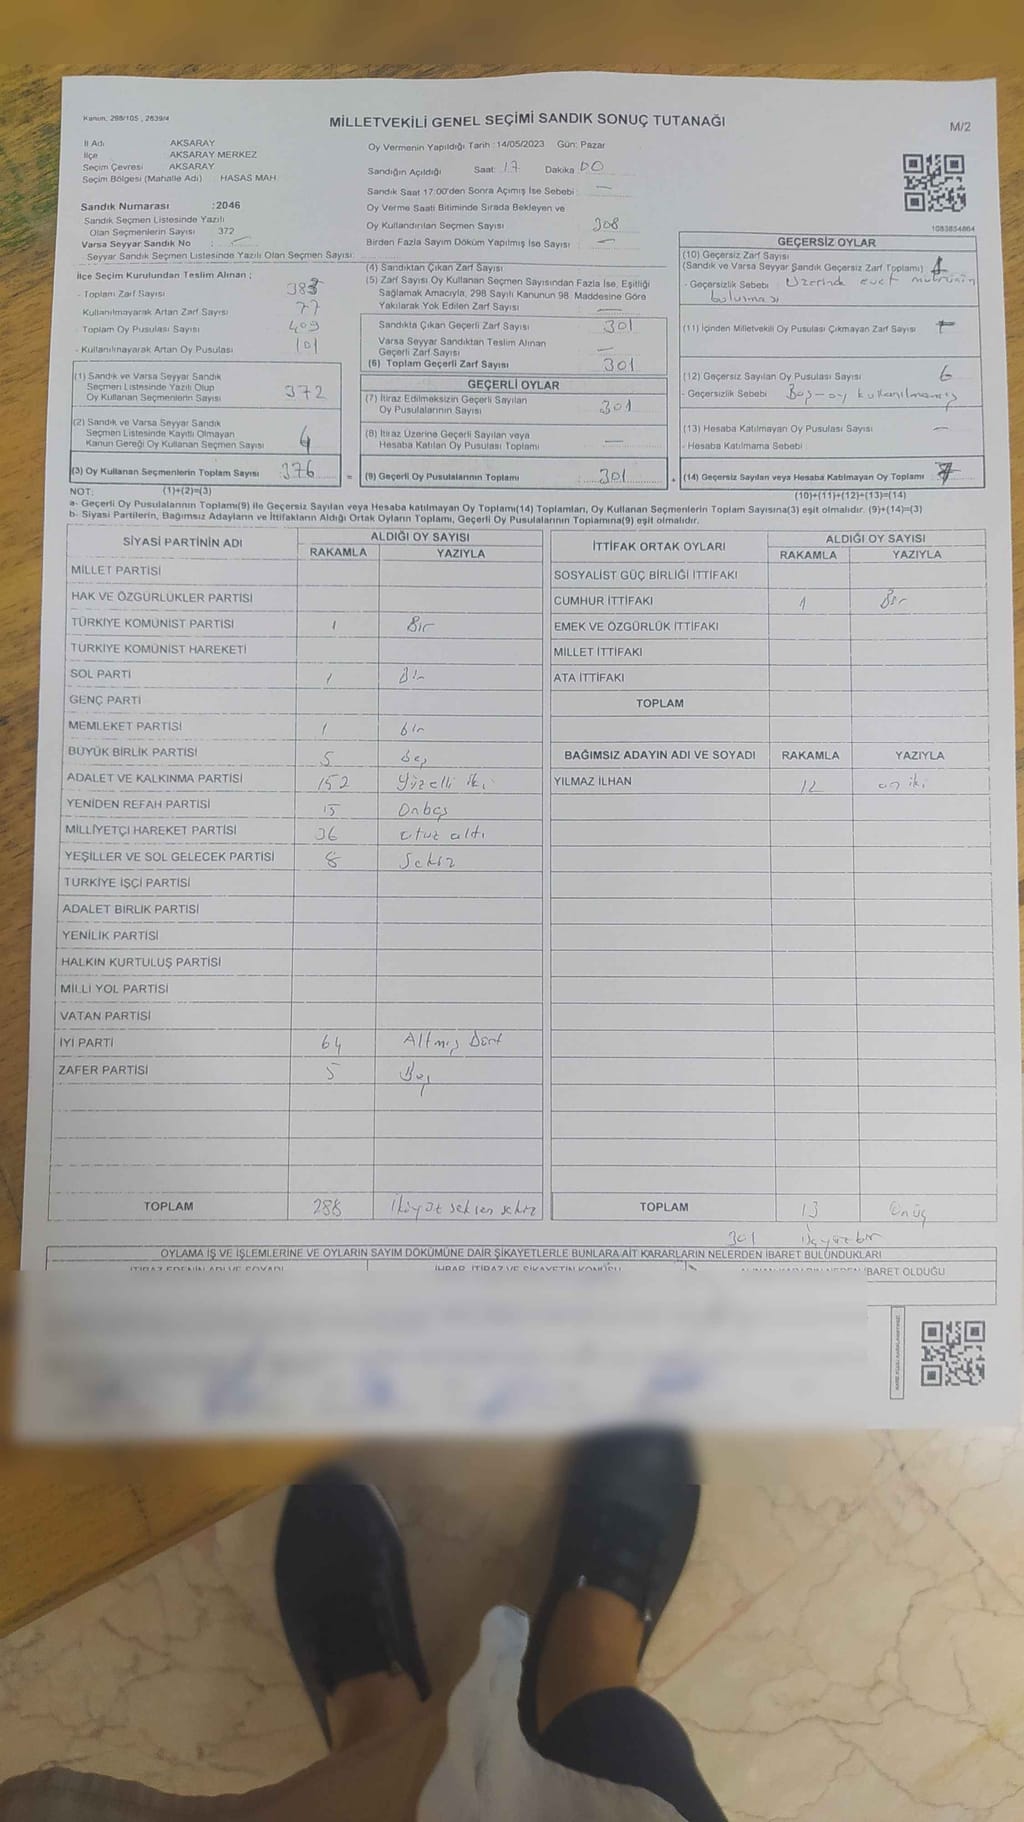 Kanun, 298/105 , 2839/4
MİLLETVEKİLİ GENEL SEÇİMİ SANDIK SONUÇ TUTANAĞI
M/2
İl Adı AKSARAY
İlçe AKSARAY MERKEZ
Seçim Çevresi AKSARAY
Seçim Bölgesi (Mahalle Adı) HASAS MAH.
Sandık Numarası :2046
Sandık Seçmen Listesinde Yazılı
Olan Seçmenlerin Sayısı 372
Varsa Seyyar Sandık No :
Seyyar Sandık Seçmen Listesinde Yazılı Olan Seçmen Sayısı:
Oy Vermenin Yapıldığı Tarih :14/05/2023 Gün: Pazar
Sandığın Açıldığı Saat: 17 Dakika 00
Sandık Saat 17:00'den Sonra Açımış İse Sebebi : —
Oy Verme Saati Bitiminde Sırada Bekleyen ve
Oy Kullandırılan Seçmen Sayısı : 308
Birden Fazla Sayım Döküm Yapılmış İse Sayısı : —
1083834864
İlçe Seçim Kurulundan Teslim Alınan ;
- Toplam Zarf Sayısı 383
Kullanılmayarak Artan Zarf Sayısı 77
- Toplam Oy Pusulası Sayısı 409
- Kullanılmayarak Artan Oy Pusulası 101
(1) Sandık ve Varsa Seyyar Sandık
Seçmen Listesinde Yazılı Olup
Oy Kullanan Seçmenlerin Sayısı 372
(2) Sandık ve Varsa Seyyar Sandık
Seçmen Listesinde Kayıtlı Olmayan
Kanun Gereği Oy Kullanan Seçmen Sayısı 4
(3) Oy Kullanan Seçmenlerin Toplam Sayısı 376
(4) Sandıktan Çıkan Zarf Sayısı
(5) Zarf Sayısı Oy Kullanan Seçmen Sayısından Fazla İse, Eşitliği
Sağlamak Amacıyla, 298 Sayılı Kanunun 98. Maddesine Göre
Yakılarak Yok Edilen Zarf Sayısı —
Sandıkta Çıkan Geçerli Zarf Sayısı 301
Varsa Seyyar Sandıktan Teslim Alınan
Geçerli Zarf Sayısı —
(6) Toplam Geçerli Zarf Sayısı 301
GEÇERLİ OYLAR
(7) İtiraz Edilmeksizin Geçerli Sayılan
Oy Pusulalarının Sayısı 301
(8) İtiraz Üzerine Geçerli Sayılan veya
Hesaba Katılan Oy Pusulası Toplamı —
= (9) Geçerli Oy Pusulalarının Toplamı 301
GEÇERSİZ OYLAR
(10) Geçersiz Zarf Sayısı
(Sandık ve Varsa Seyyar Sandık Geçersiz Zarf Toplamı) 1
- Geçersizlik Sebebi : Üzerinde evet mührünün
bulunması
(11) İçinden Milletvekili Oy Pusulası Çıkmayan Zarf Sayısı
(12) Geçersiz Sayılan Oy Pusulası Sayısı 6
- Geçersizlik Sebebi Boş-oy kullanılmamış
(13) Hesaba Katılmayan Oy Pusulası Sayısı —
- Hesaba Katılmama Sebebi
+ (14) Geçersiz Sayılan veya Hesaba Katılmayan Oy Toplamı 7
NOT: (1)+(2)=(3)
(10)+(11)+(12)+(13)=(14)
a- Geçerli Oy Pusulalarının Toplamı(9) ile Geçersiz Sayılan veya Hesaba katılmayan Oy Toplamı(14) Toplamları, Oy Kullanan Seçmenlerin Toplam Sayısına(3) eşit olmalıdır. (9)+(14)=(3)
b- Siyasi Partilerin, Bağımsız Adayların ve İttifakların Aldığı Ortak Oyların Toplamı, Geçerli Oy Pusulalarının Toplamına(9) eşit olmalıdır.
SİYASİ PARTİNİN ADI ALDIĞI OY SAYISI
RAKAMLA YAZIYLA
MİLLET PARTİSİ
HAK VE ÖZGÜRLÜKLER PARTİSİ
TÜRKİYE KOMÜNİST PARTİSİ 1 Bir
TÜRKİYE KOMÜNİST HAREKETİ
SOL PARTİ 1 Bir
GENÇ PARTİ
MEMLEKET PARTİSİ 1 bir
BÜYÜK BİRLİK PARTİSİ 5 Beş
ADALET VE KALKINMA PARTİSİ 152 Yüzelli iki
YENİDEN REFAH PARTİSİ 15 Onbeş
MİLLİYETÇİ HAREKET PARTİSİ 36 otuz altı
YEŞİLLER VE SOL GELECEK PARTİSİ 8 Sekiz
TÜRKİYE İŞÇİ PARTİSİ
ADALET BİRLİK PARTİSİ
YENİLİK PARTİSİ
HALKIN KURTULUŞ PARTİSİ
MİLLİ YOL PARTİSİ
VATAN PARTİSİ
İYİ PARTİ 64 Altmış Dört
ZAFER PARTİSİ 5 Beş
TOPLAM 288 İkiyüz seksen sekiz
İTTİFAK ORTAK OYLARI ALDIĞI OY SAYISI
RAKAMLA YAZIYLA
SOSYALİST GÜÇ BİRLİĞİ İTTİFAKI
CUMHUR İTTİFAKI 1 Bir
EMEK VE ÖZGÜRLÜK İTTİFAKI
MİLLET İTTİFAKI
ATA İTTİFAKI
TOPLAM
BAĞIMSIZ ADAYIN ADI VE SOYADI RAKAMLA YAZIYLA
YILMAZ İLHAN 12 on iki
TOPLAM 13 Onüç
301 üçyüzbir
OYLAMA İŞ VE İŞLEMLERİNE VE OYLARIN SAYIM DÖKÜMÜNE DAİR ŞİKAYETLERLE BUNLARA AİT KARARLARIN NELERDEN İBARET BULUNDUKLARI
İTİRAZ EDENİN ADI VE SOYADI İHBAR, İTİRAZ VE ŞİKAYETİN KONUSU İBARET OLDUĞU